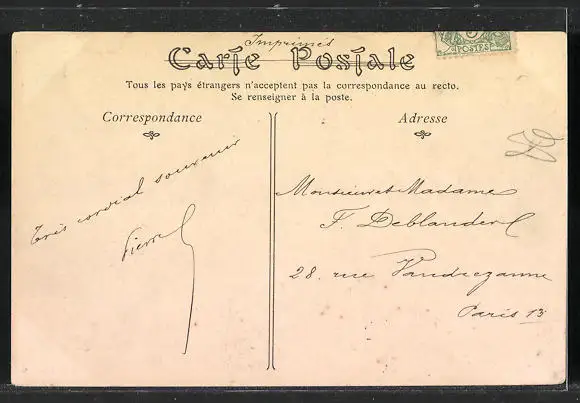 Imprimés
Carte Postale
5
POSTES
Tous les pays étrangers n'acceptent pas la correspondance au recto.
Se renseigner à la poste.
Correspondance
Très cordial souvenir
Pierre
Adresse
Monsieur et Madame
F. Deblander
28. rue Vandrezanne
Paris 13